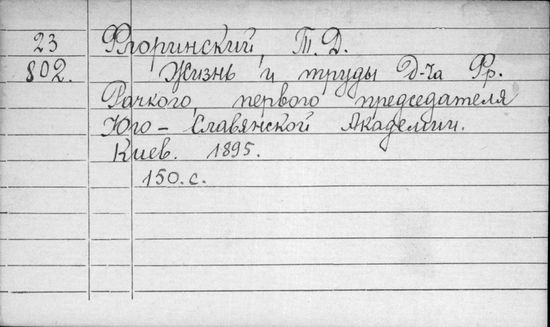 23 Флоринский, Т. Д.
802. Жизнь и труды Д-ча Фр.
Рачкого, первого председателя
Юго-Славянской Академии.
Киев. 1895.
150.с.